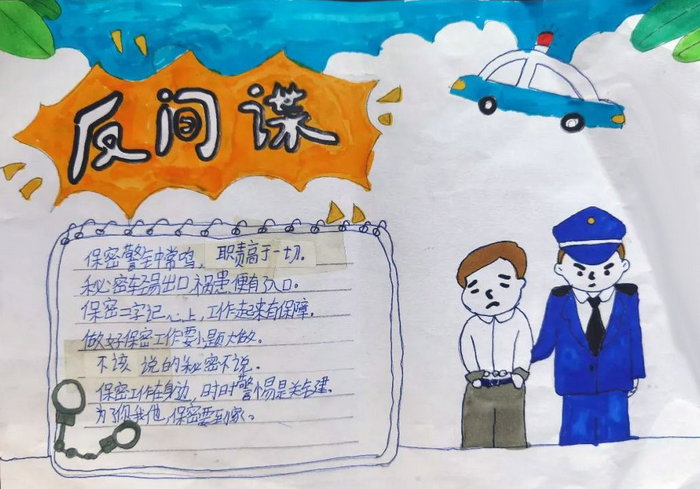 反间谍
保密警钟常鸣，职责高于一切。
秘密轻易出口，祸患便有入口。
保密二字记心上，工作起来有保障。
做好保密工作要小题大做。
不该说的秘密不说。
保密工作在身边，时时警惕是关键。
为了你我他，保密要到家。